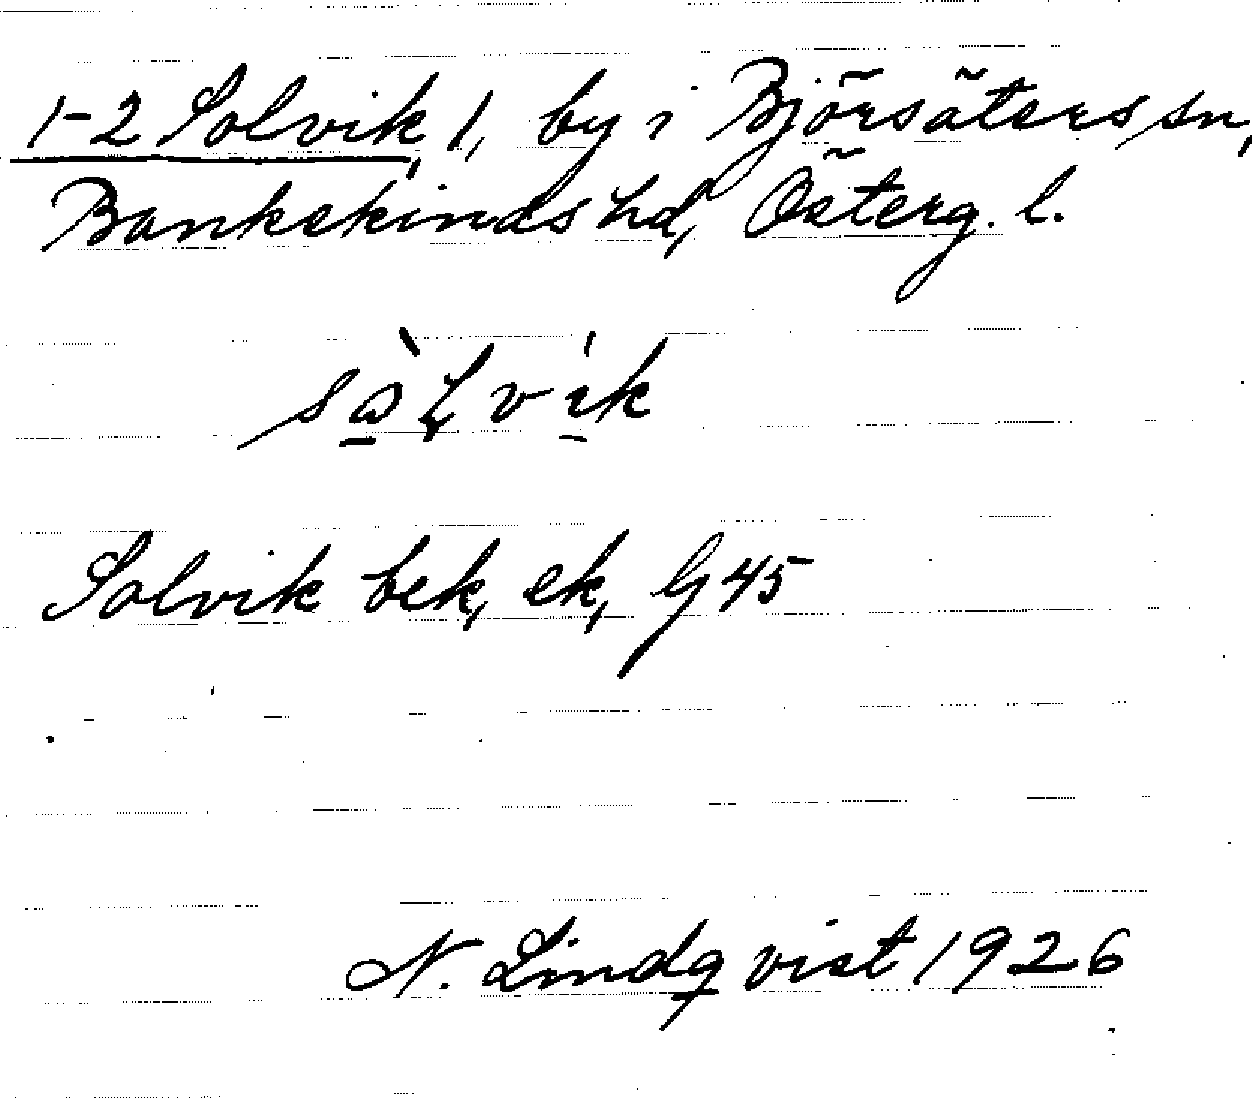 1-2 Solvik, 1, by i Björsäters sn,
Bankekinds hd, Österg. l.
Solvik bek, ek, Gj 45
N. Lindqvist 1926